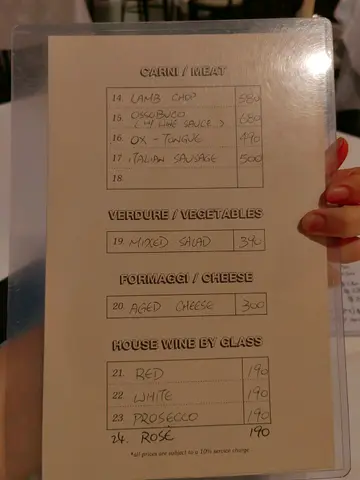 CARNI / MEAT
14. LAMB CHOP 580
15. OSSOBUCO
(W/ WINE SAUCE) 680
16. OX - TONGUE 490
17. ITALIAN SAUSAGE 500
18.
VERDURE / VEGETABLES
19. MIXED SALAD 340
FORMAGGI / CHEESE
20. AGED CHEESE 300
HOUSE WINE BY GLASS
21. RED 190
22. WHITE 190
23. PROSECCO 190
24. ROSÉ 190
*all prices are subject to y 10% service charge